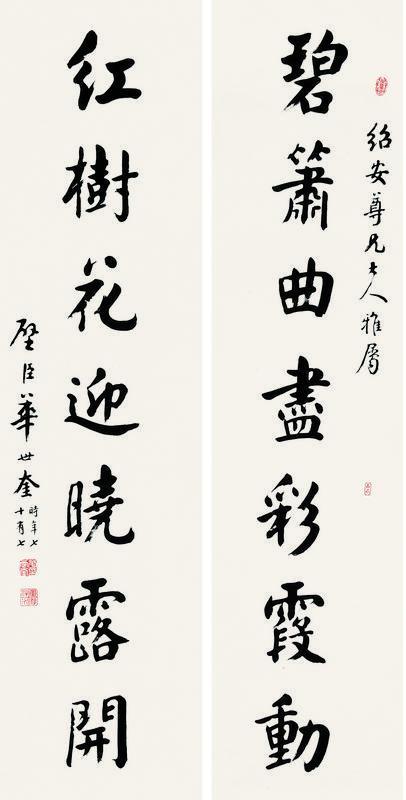 紹安尊兄大人雅屬
碧簫曲盡彩霞動
紅樹花迎曉露開
璧臣華世奎
時年七
十有七